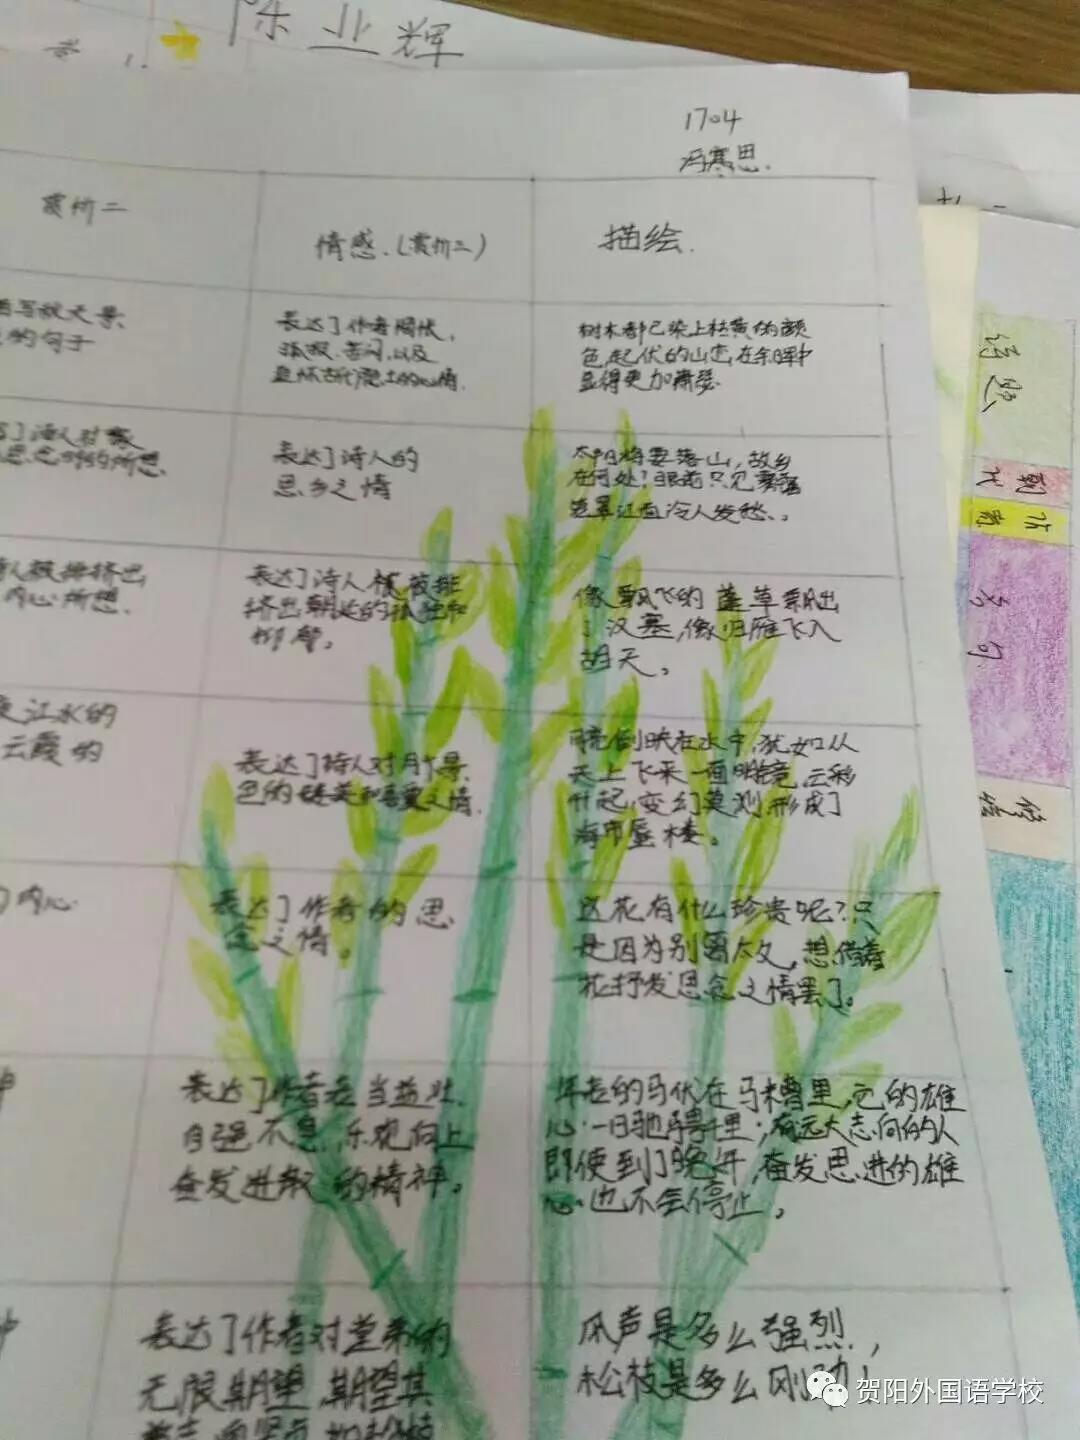 陈业辉
1704
冯寒思.
赏析二
情感.(赏析三)
描绘.
写秋天景
的句子
表达了作者
孤寂.苦闷,以及
树木都已染上枯黄的颜
色,起伏的山峦,在余晖中
显得更加萧瑟.
诗人对家
的所想.
表达了诗人的
思乡之情
太阳将要落山,故乡
在何处?眼前只见
人发愁。
人被排挤出
内心所想.
表达了诗人被排
挤出朝廷的孤独和
抑郁。
像飘飞的蓬草飘出
了汉塞,像归雁飞入
胡天。
江水的
云霞的
表达了诗人对月下景
色的赞美和喜爱之情.
倒映在水中,犹如从
天上飞来一面明镜,云彩
升起,变幻莫测,形成了
海市蜃楼。
内心
表达了作者的思
念之情。
这花有什么珍贵呢?只
是因为别离太久,想借着
花抒发思念之情罢了。
表达了作者老当益壮.
自强不息.乐观向上
奋发进取的精神。
年老的马伏在马槽里,它的雄
心一日驰骋千里;有远大志向的人
即使到了晚年,奋发思进的雄
心也不会停止。
表达了作者对堂弟的
无限期望,期望其
风声是多么强烈,
松枝是多么刚劲!
诗史
朝代
作者
名句
贺阳外国语学校